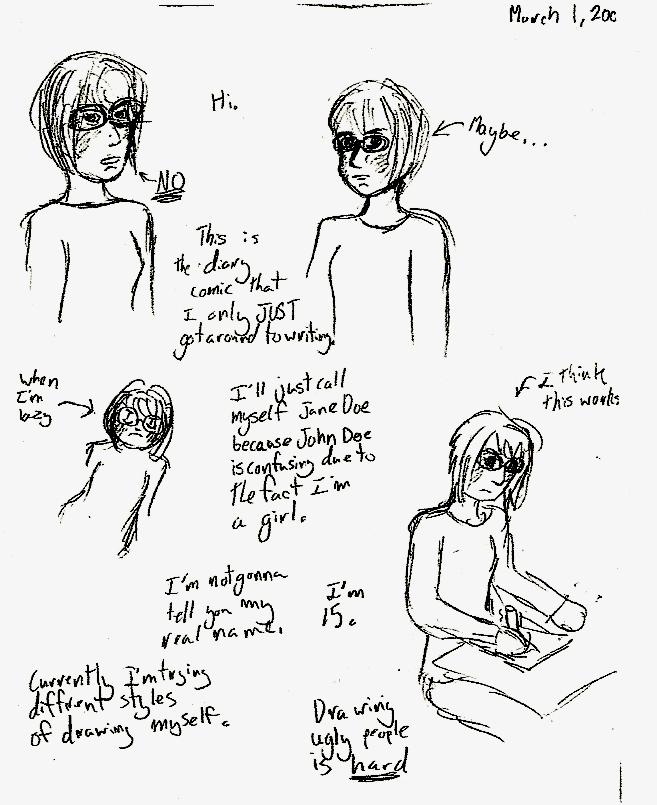 March 1, 200
Hi.
Maybe...
NO
This is
the diary
comic that
I only JUST
got around to writing.
when
I'm
lazy
I'll just call
myself Jane Doe
because John Doe
is confusing due to
the fact I'm
a girl.
I think
this works
I'm not gonna
tell you my
real name.
I'm
15.
Currently I'm trying
diffrent styles
of drawing myself.
Drawing
ugly people
is hard